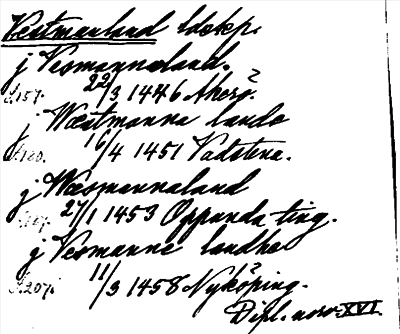 Vestmanland ldskp.
j Vesmannaland.
s. 157. 22/3 1446 Åkerö.
j Wæstmanna lande
s. 180. 16/4 1451 Vadstena.
j Wæsmannaland
27/1 1453 Oppunda ting.
j Vesmanne landhe
s. 207. 11/3 1458 Nyköping.
Dipl. norv. XVI.